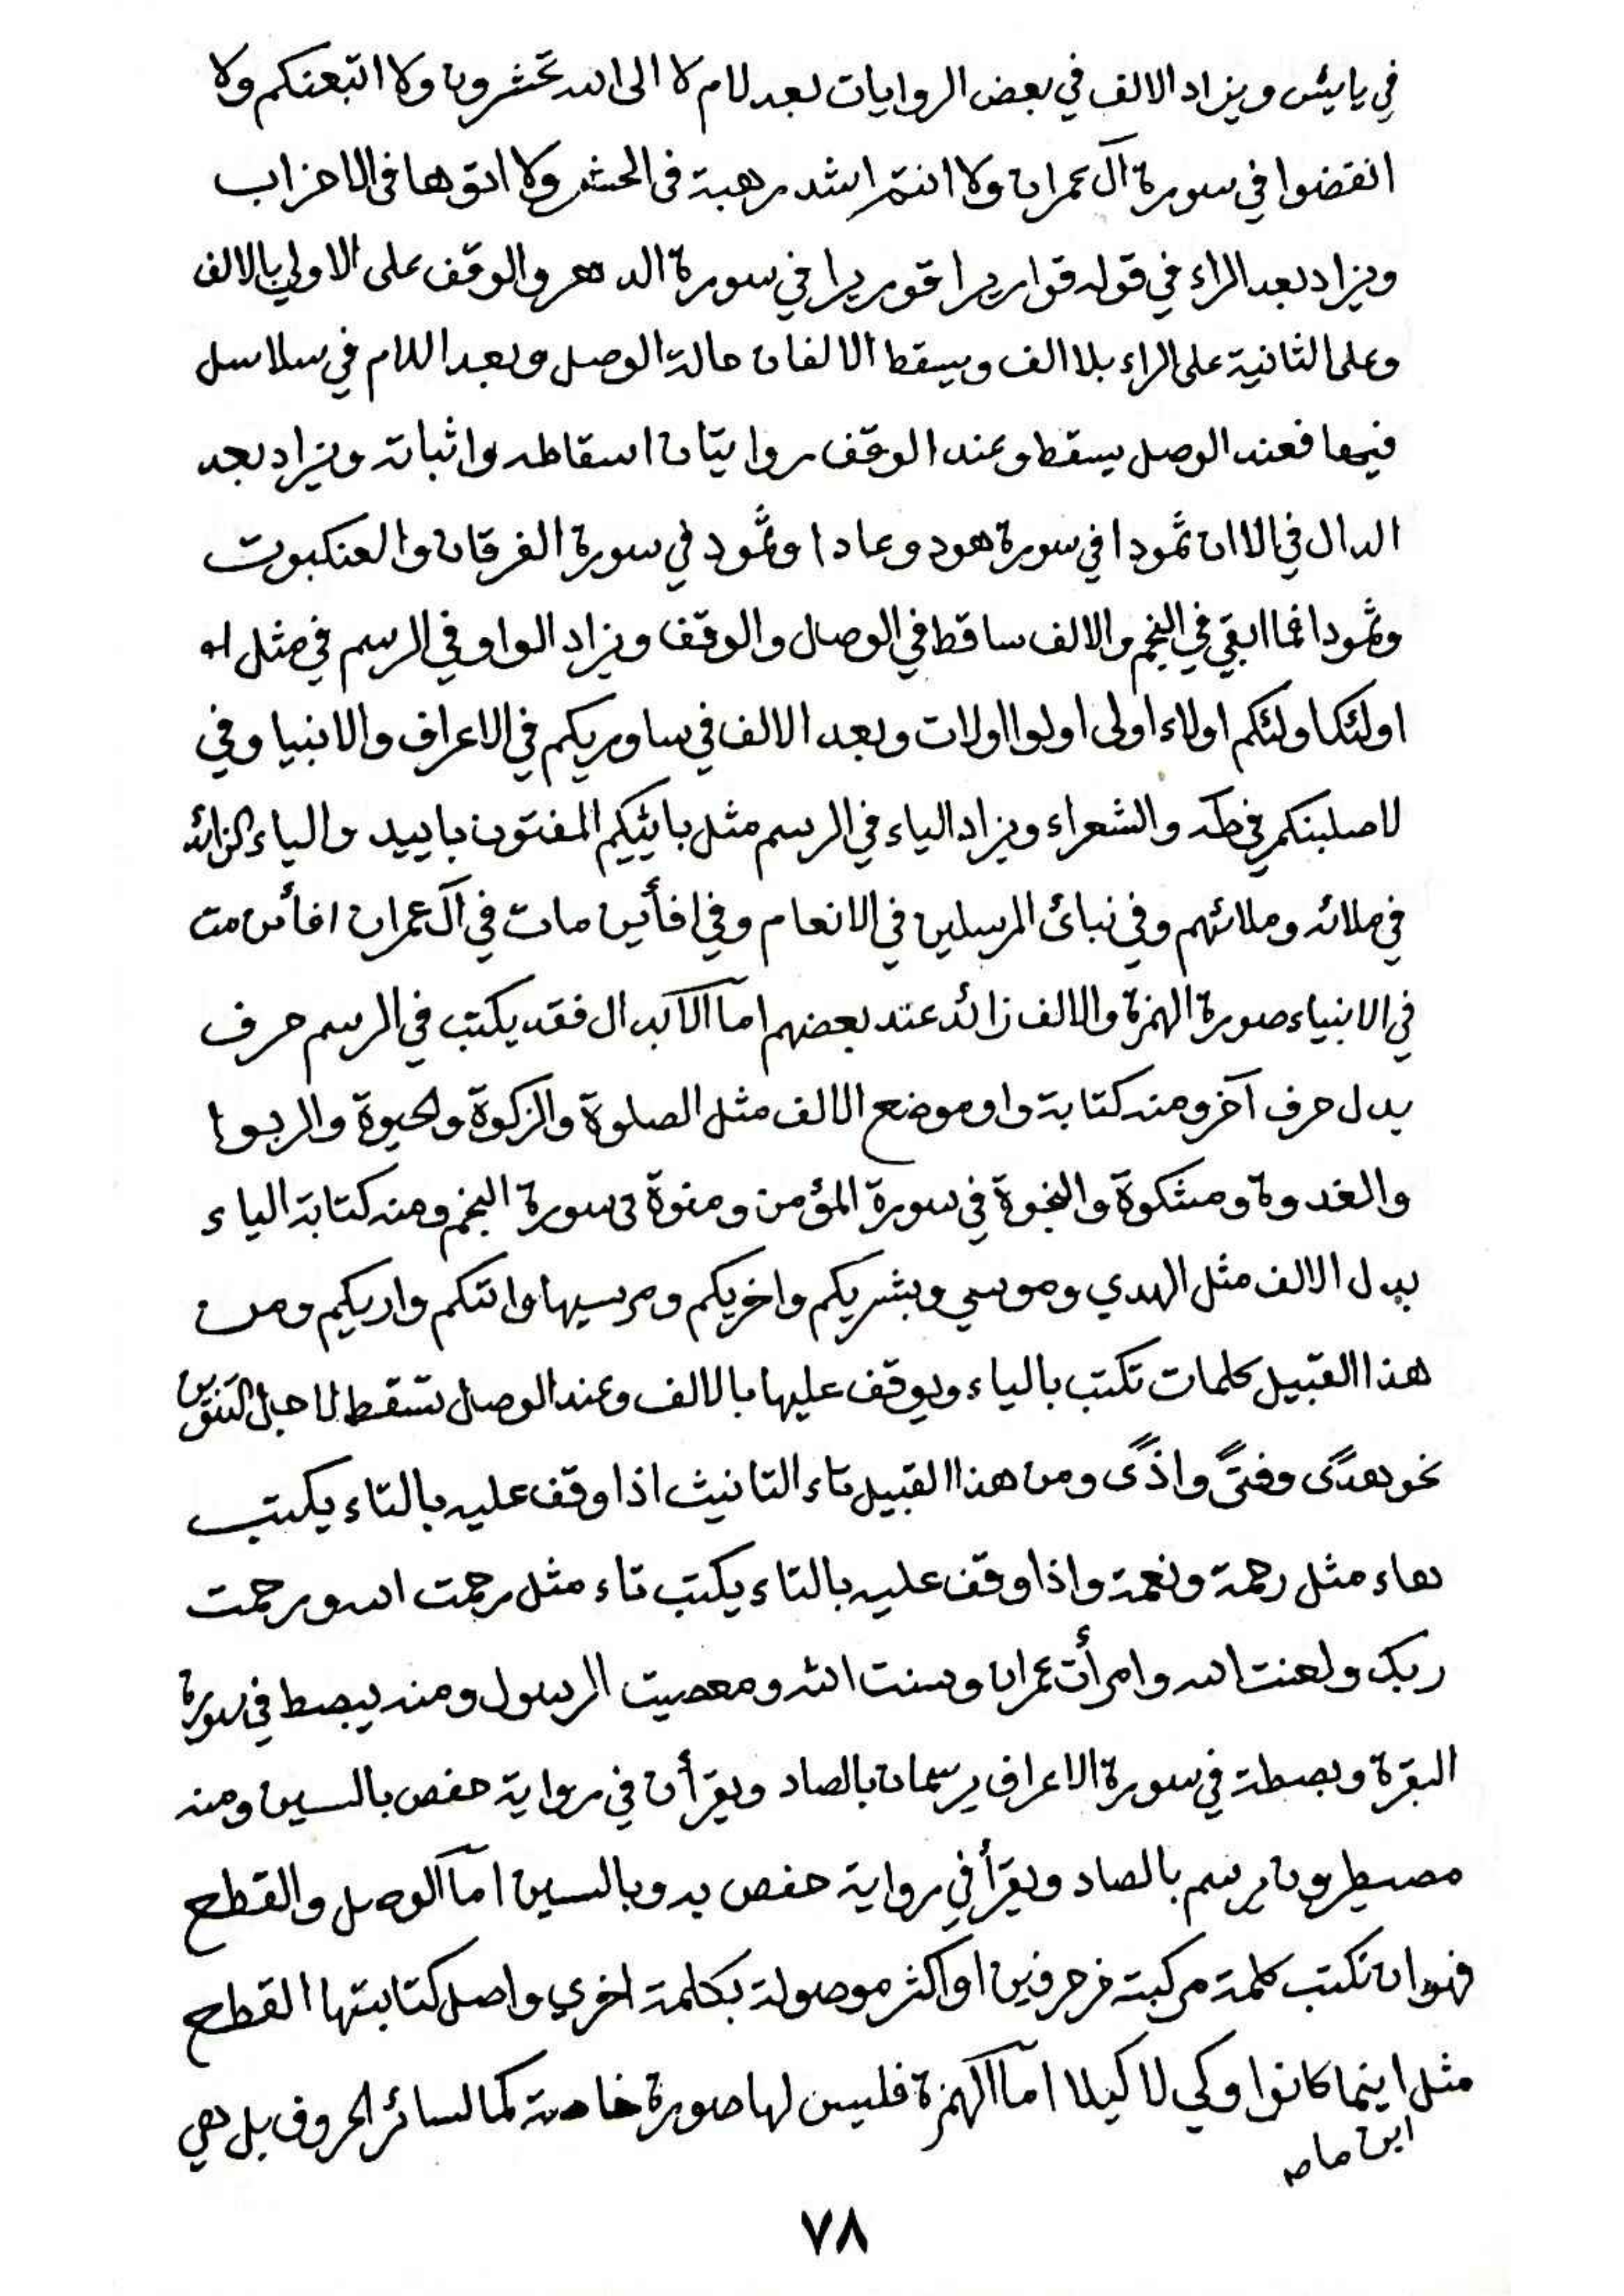 في يايئس ويزاد الالف في بعض الروايات بعد لام لا الى الله تحشرون ولا اتبعنكم ولا
انفضوا في سورة آل عمران ولا انتم اشد رهبة فى الحشر ولا اتوها فى الاحزاب
ويزاد بعد الراء في قوله قواريرا قوريرا في سورة الدهر والوقف على الاولي بالالف
وعلى الثانية على الراء بلا الف ويسقط الالفان حالة الوصل وبعد اللام في سلاسل
فيها فعند الوصل يسقط وعند الوقف روايتان اسقاطه واثباته ويزاد بعد
الدال في الا ان ثمودا في سورة هود وعادا وثمود في سورة الفرقان والعنكبوت
وثمودا فما ابقي في النجم والالف ساقط في الوصل والوقف ويزاد الواو في الرسم في مثل
اولئك اولئكم اولاء اولى اولوا اولات وبعد الالف في ساوريكم في الاعراف والانبيا وفي
لاصلبنكم في طه والشعراء ويزاد الياء في الرسم مثل بائيكم المفتون باييد والياء الزائد
في ملائه وملائهم وفي نبائ المرسلين في الانعام وفي افأين مات في آل عمران افأئن مت
في الانبياء صورة الهمزة والالف زائد عند بعضهم اما الابدال فقد يكتب في الرسم حرف
بدل حرف آخر ومنه كتابة واو موضع الالف مثل الصلوة والزكوة والحيوة والربوا
والغدوة ومشكوة والنجوة في سورة المؤمن ومنوة فى سورة النجم ومنه كتابة الياء
بدل الالف مثل الهدي وموسي وبشريكم واخريكم ومرسيها واتكم واريكم ومن
هذا القبيل كلمات تكتب بالياء ويوقف عليها بالالف وعند الوصل تسقط لاجل التنوين
نحو هدًى وفتًى واذًى ومن هذا القبيل تاء التانيث اذا وقف عليه بالتاء يكتب
هاء مثل رحمة ونعمة واذا وقف عليه بالتاء يكتب تاء مثل رحمت الله ورحمت
ربك ولعنت الله وامرأت عمران وسنت الله ومعصيت الرسول ومنه يبصط في سورة
البقرة وبصطة في سورة الاعراف يرسمان بالصاد ويقرأن في رواية حفص بالسين ومنه
مصيطرون يرسم بالصاد ويقرأ في رواية حفص به وبالسين اما الوصل والقطع
فهو ان تكتب كلمة مركبة من حرفين او اكثر موصولة بكلمة اخري واصل كتابتها القطع
مثل اينما كانوا وكي لا كيلا اما الهمزة فليس لها صورة خاصة كما لسائر الحروف بل هي
اين ما
٧٨